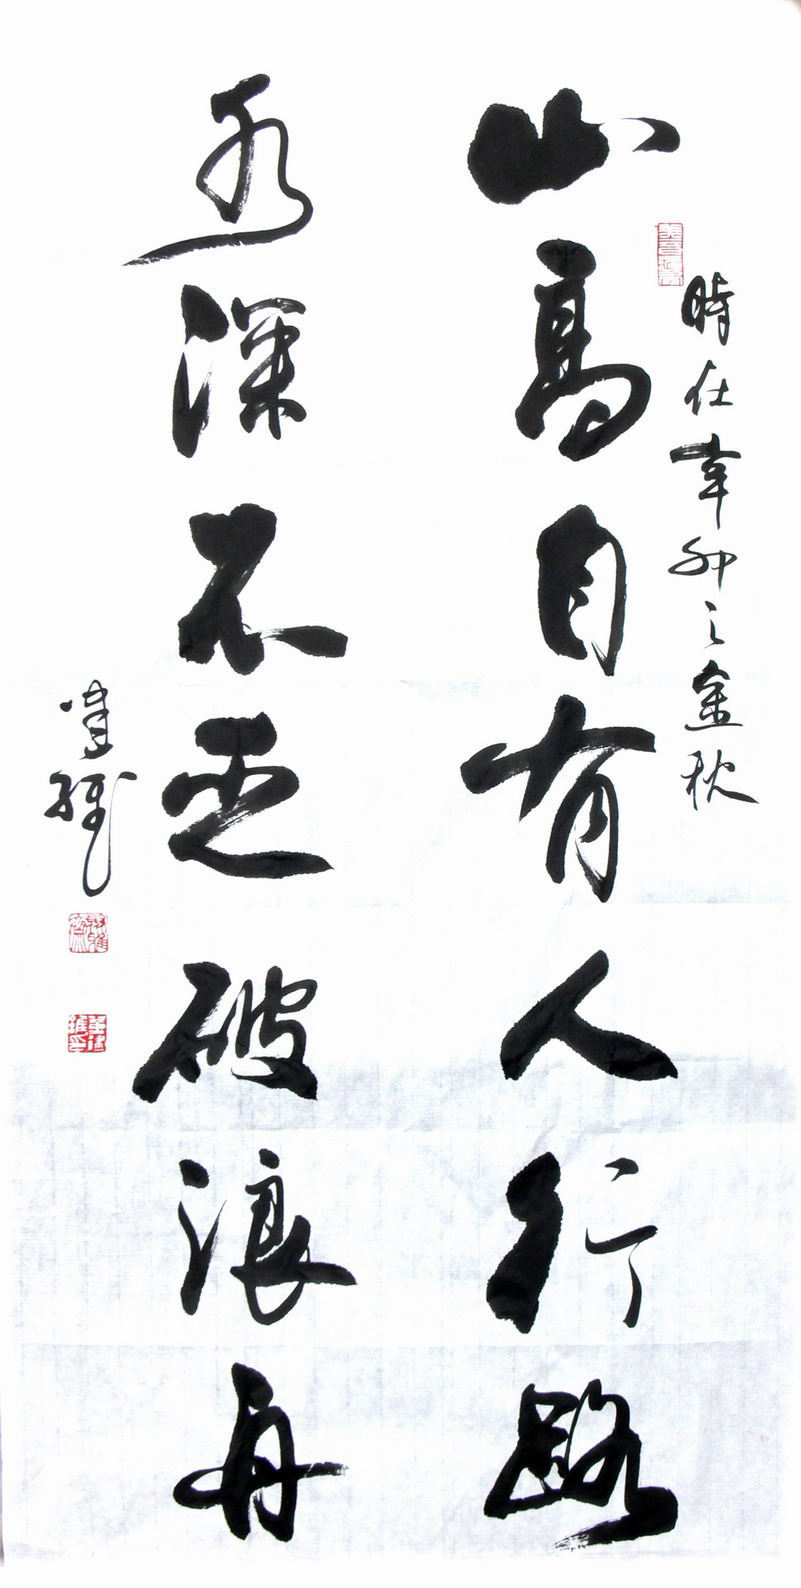 時在辛卯之金秋
山高自有人行路
水深不乏破浪舟